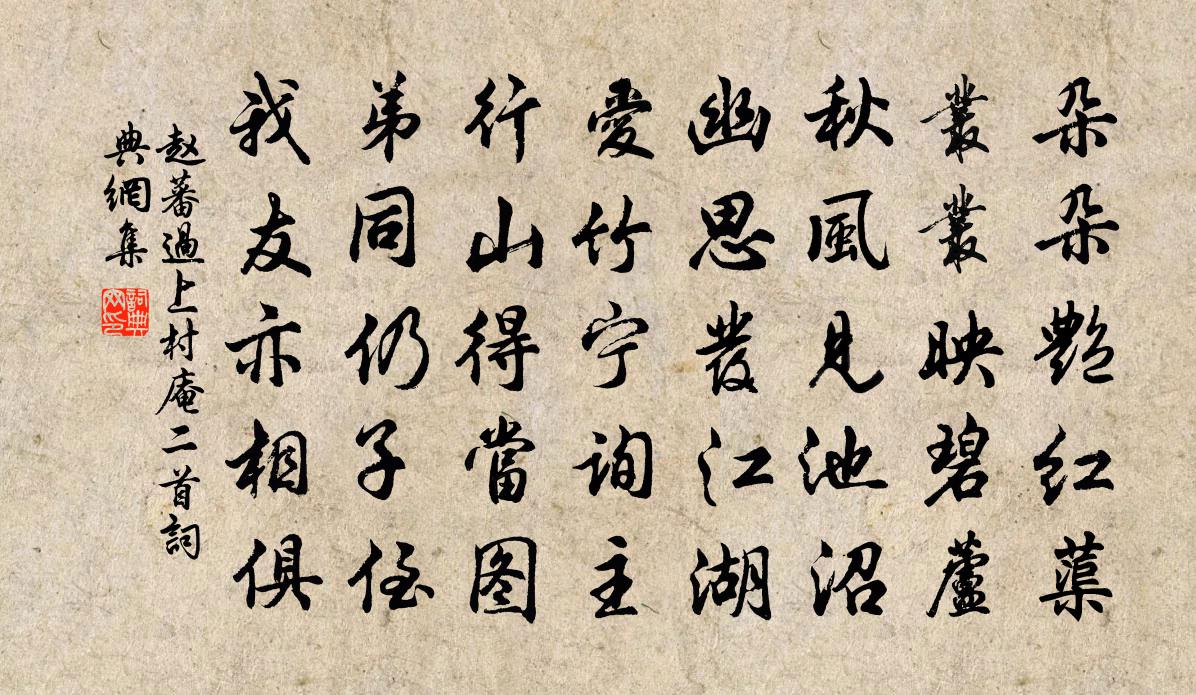 朵朵艷红蕖
叢叢映碧蘆
秋風見池沼
幽思發江湖
愛竹宁詢主
行山得當图
弟同仍子侄
我友亦相俱
赵蕃過上村庵二首詞
典網集
詞典網印